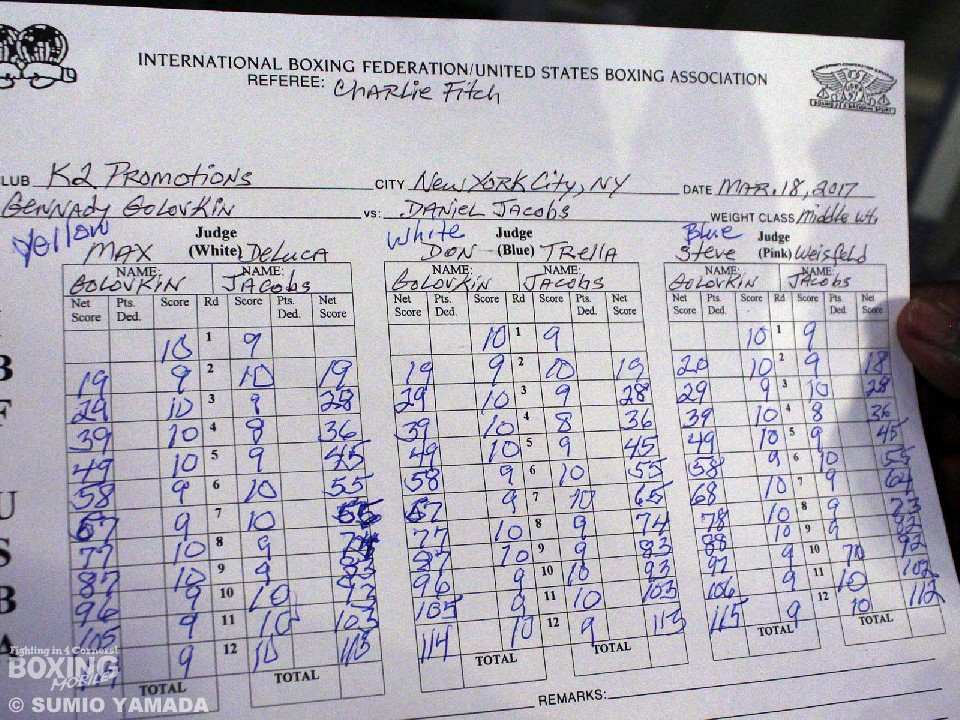 INTERNATIONAL BOXING FEDERATION/UNITED STATES BOXING ASSOCIATION
REFEREE: Charlie Fitch
LUB K2 Promotions CITY New York City, NY DATE MAR. 18, 2017
Gennady Golovkin vs: Daniel Jacobs WEIGHT CLASS Middle Wt.
Yellow White Blue
MAX Judge (White) DeLuca DON Judge (Blue) Trella Steve Judge (Pink) Weisfeld
NAME: Golovkin NAME: Jacobs NAME: Golovkin NAME: Jacobs NAME: Golovkin NAME: Jacobs
Net Score Pts. Ded. Score Rd Score Pts. Ded. Net Score Net Score Pts. Ded. Score Rd Score Pts. Ded. Net Score Net Score Pts. Ded. Score Rd Score Pts. Ded. Net Score
10 1 9 10 1 9 10 1 9
19 9 2 10 19 19 9 2 10 19 20 10 2 9 18
29 10 3 9 28 29 10 3 9 28 29 9 3 10 28
39 10 4 8 36 39 10 4 8 36 39 10 4 8 36
49 10 5 9 45 49 10 5 9 45 49 10 5 9 45
58 9 6 10 55 58 9 6 10 55 58 9 6 10 55
67 9 7 10 67 9 7 10 65 68 10 7 9 64
77 10 8 9 77 10 8 9 74 78 10 8 9 73
87 10 9 9 87 10 9 9 83 88 10 9 9 82
96 9 10 10 93 96 9 10 10 93 97 9 10 10 92
105 9 11 10 103 105 9 11 10 103 106 9 11 10 102
9 12 10 113 114 10 12 9 113 115 9 12 10 112
TOTAL TOTAL TOTAL TOTAL TOTAL TOTAL
REMARKS:
B
F
U
S
B
A
Fighting in 4 Corners!
BOXING
MOBILE
© SUMIO YAMADA